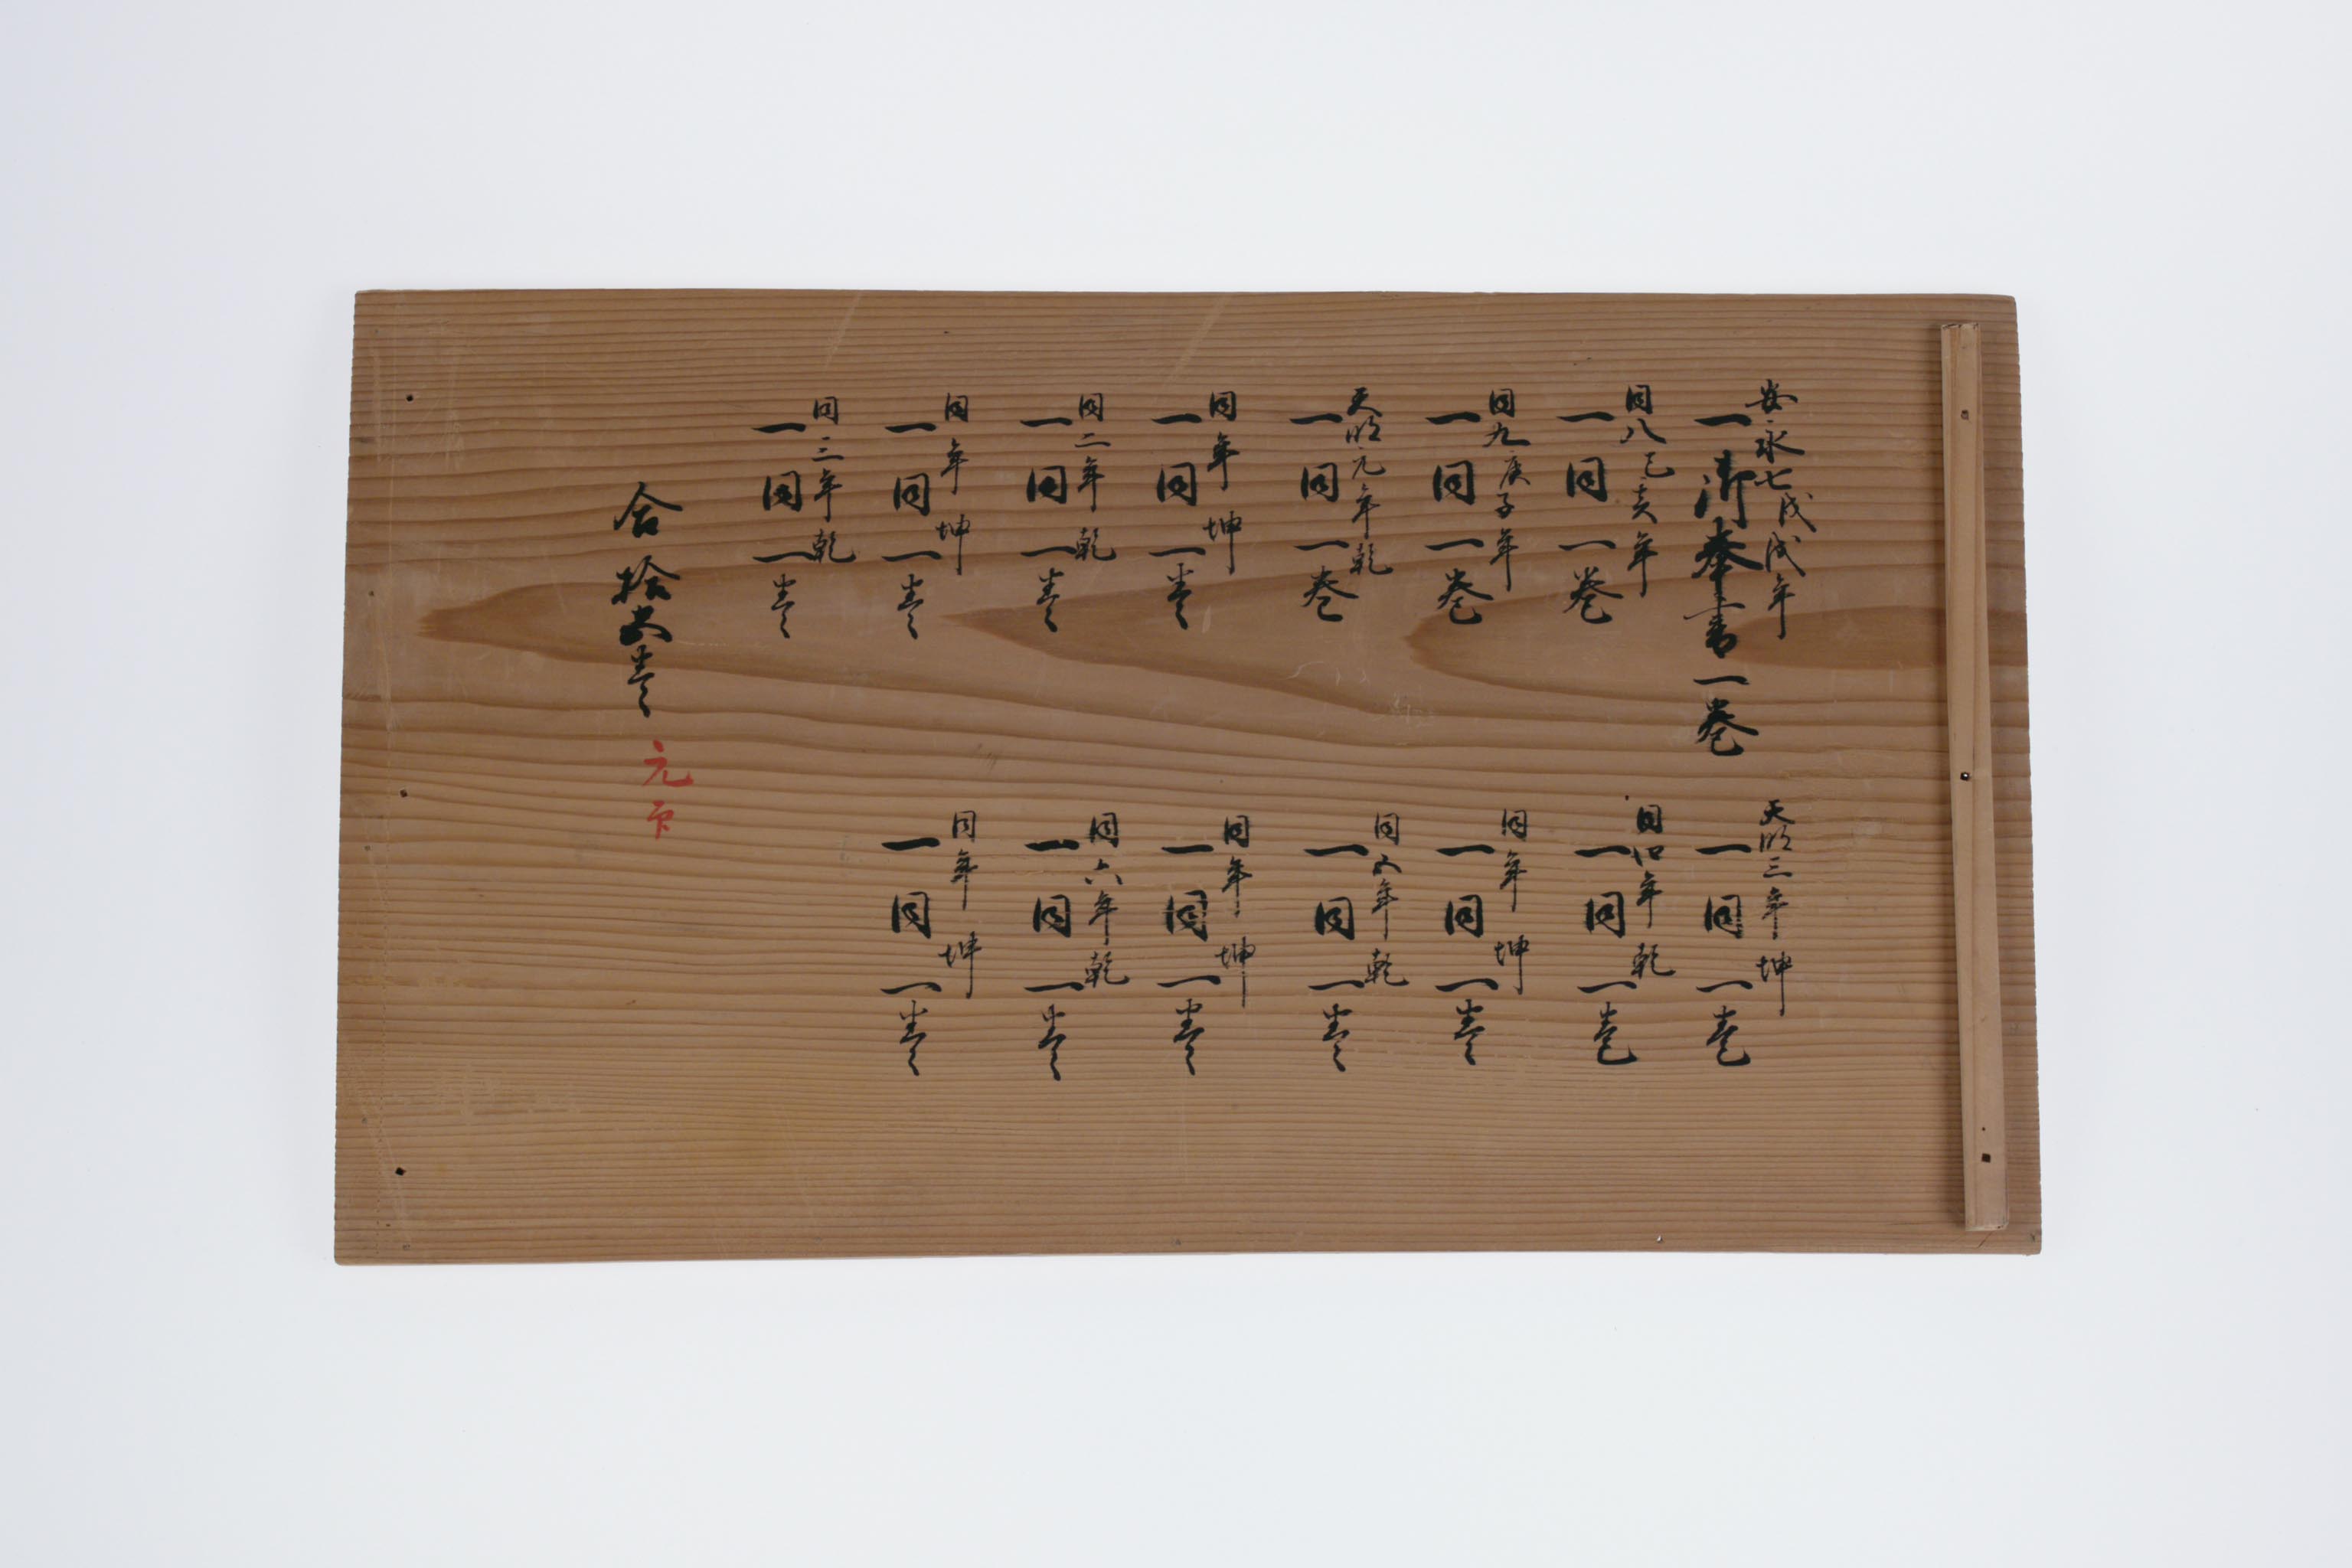 安永七戊戌年
一御奉書一巻
同八己亥年
一同一巻
同九庚子年
一同一巻
天明元年乾
一同一巻
同年坤
一同一巻
同二年乾
一同一巻
同年坤
一同一巻
同三年乾
一同一巻
天明三年坤
一同一巻
同四年乾
一同一巻
同年坤
一同一巻
同五年乾
一同一巻
同年坤
一同一巻
同六年乾
一同一巻
同年坤
一同一巻
合拾五巻
元